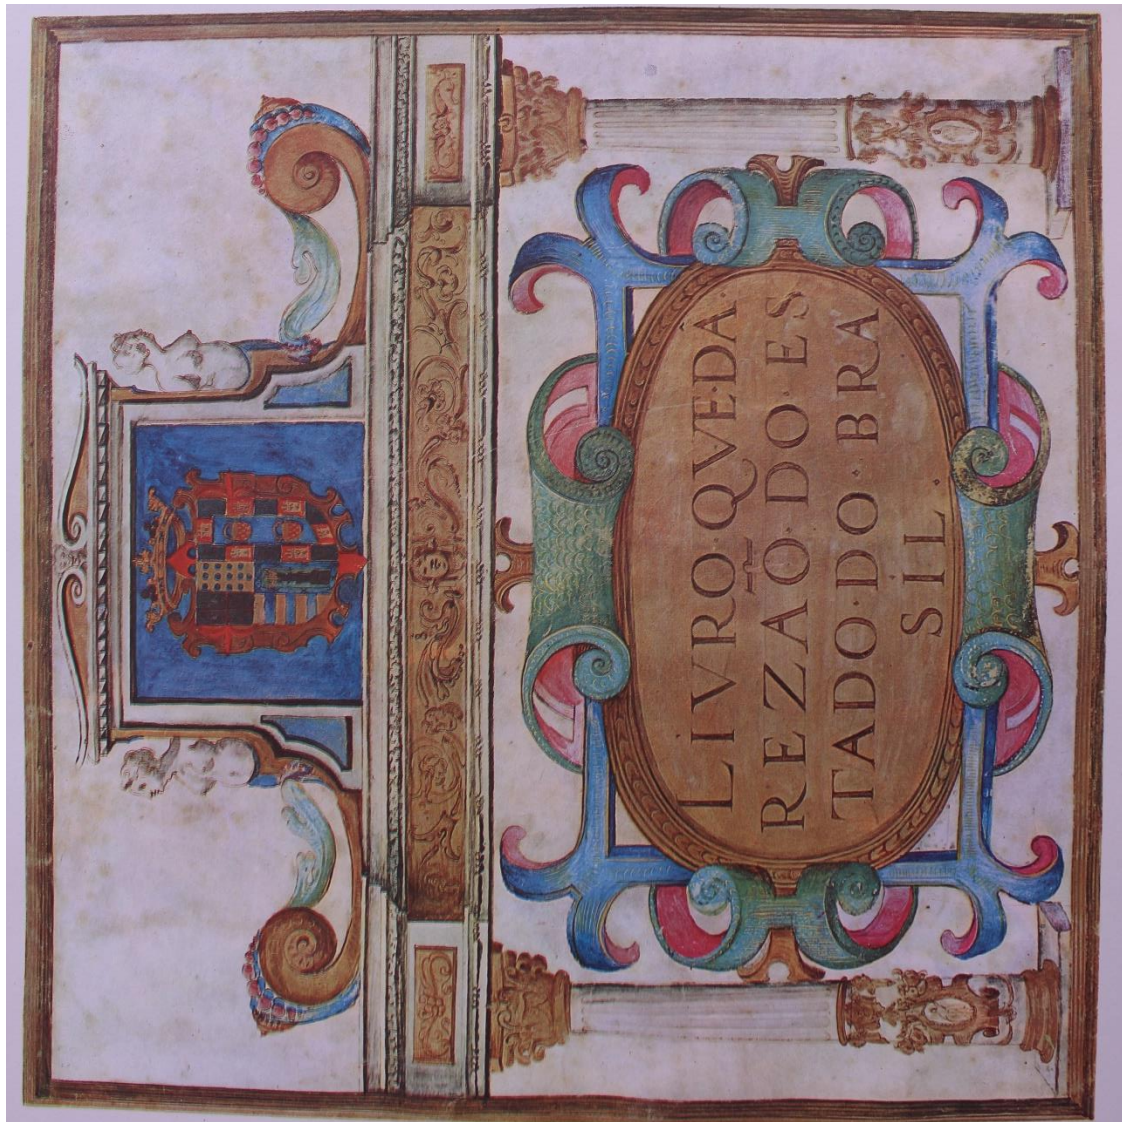 LIVRO·QVE·DA
REZAÕ·DO·ES
TADO·DO·BRA
SIL·